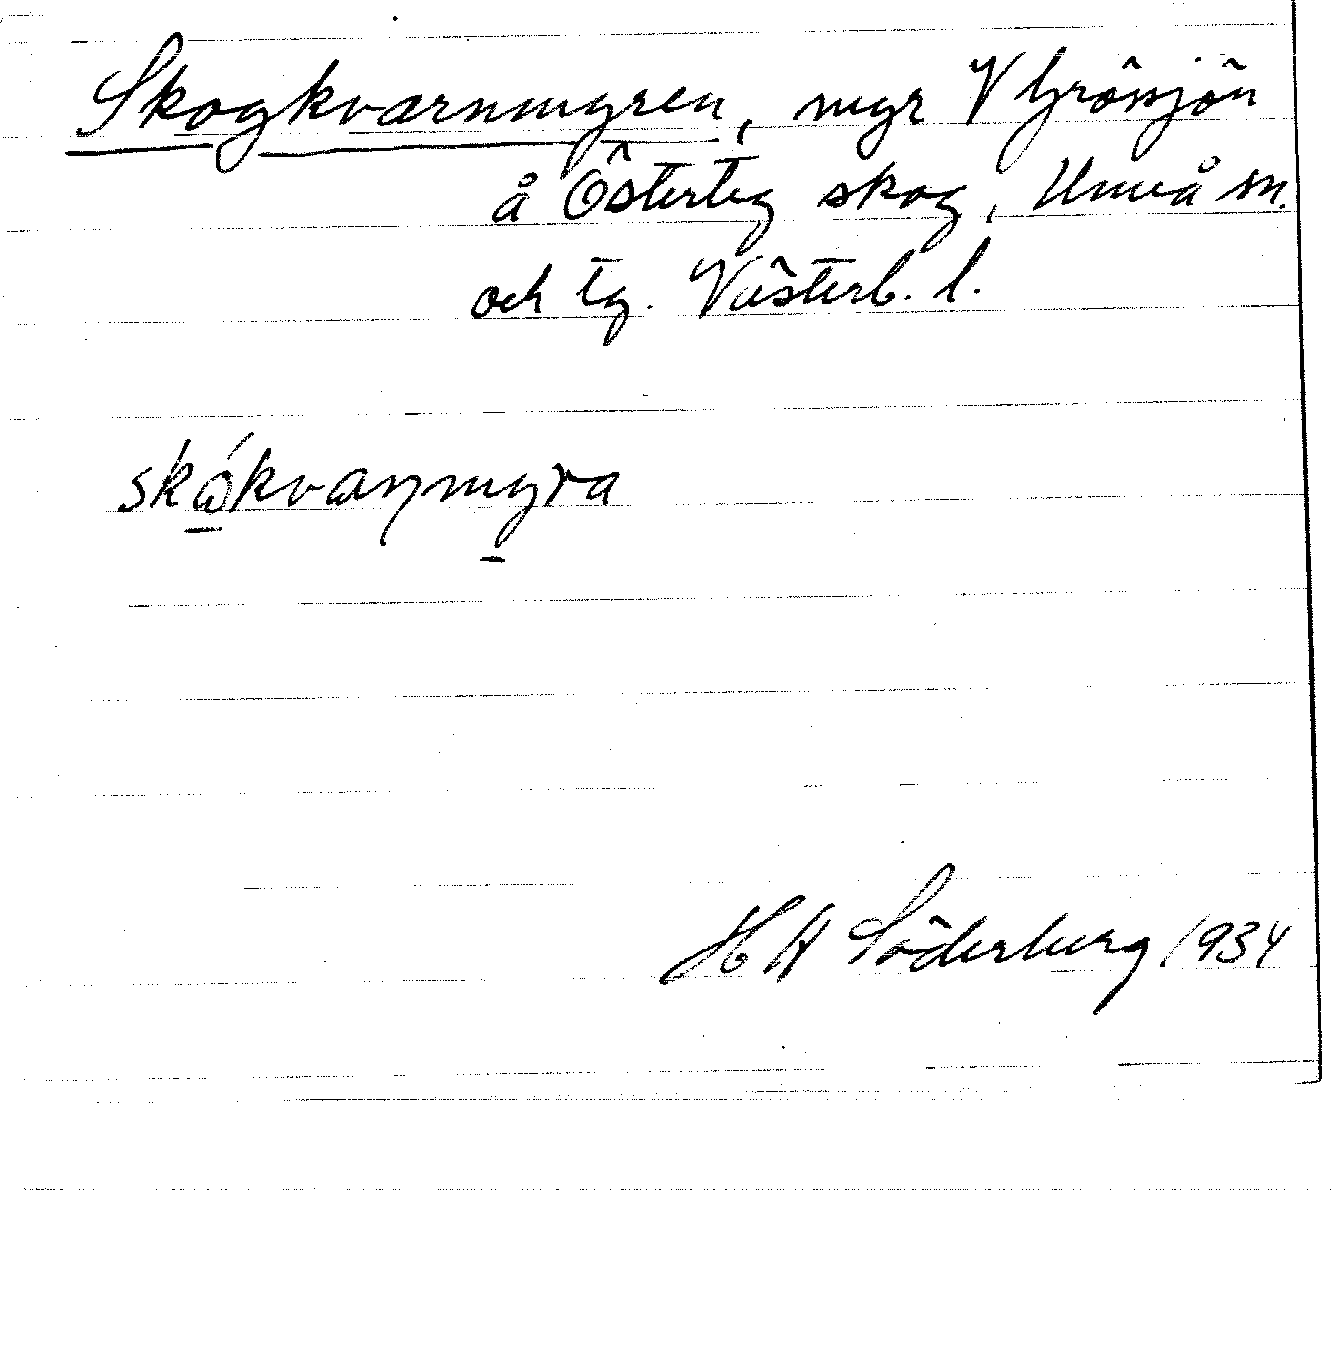 Skogkvarnmyren, myr V Grössjön
å Österteg skog, Umeå sn.
och tg. Västerb. l.
skǻkvaɳmyra
H A Söderberg 1934